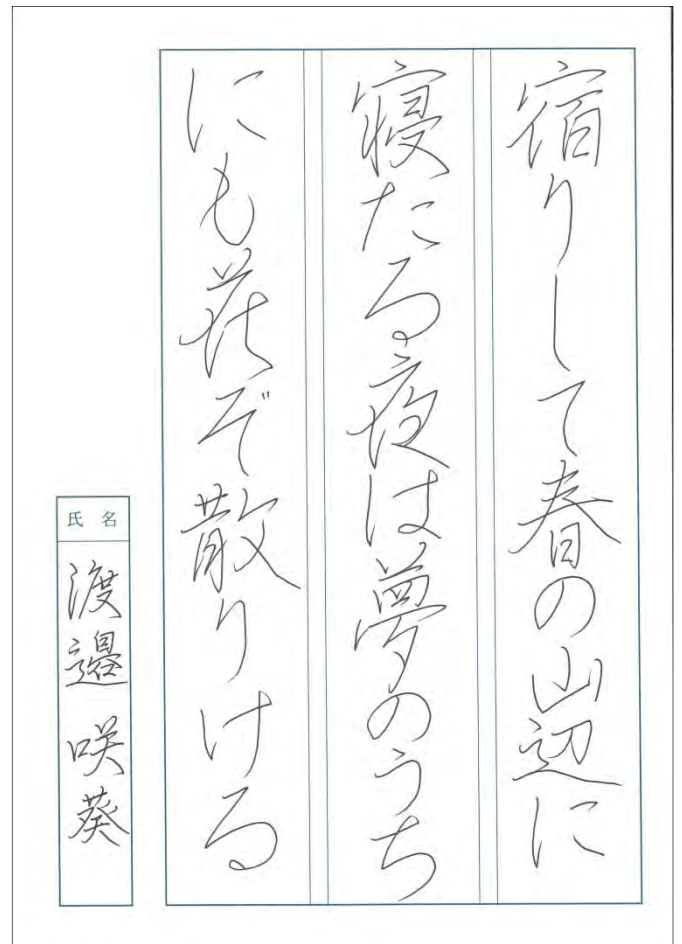 宿りして春の山辺に
寝たる夜は夢のうち
にも花ぞ散りける
氏名
渡邉咲葵